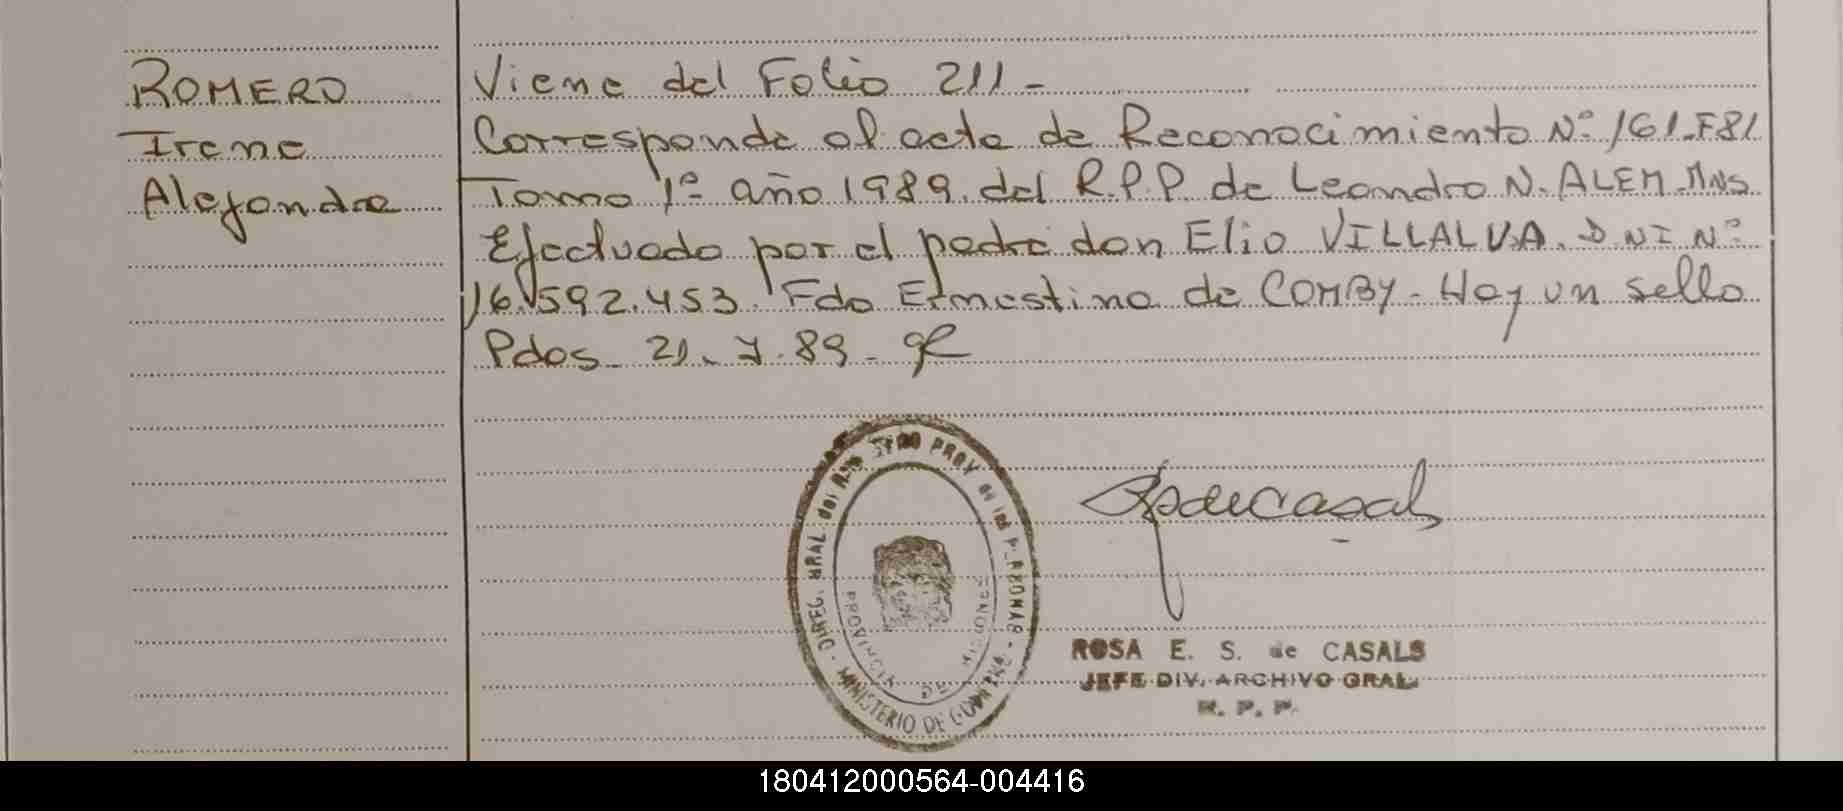 ROMERO
Irene
Alejandra
Viene del Folio 211-
Corresponde al acta de Reconocimiento Nº 161-F81
Tomo 1º año 1989. del R.P.P. de Leandro N. ALEM-Mns.
Efectuado por el padre don Elio VILLALVA. DNI Nº
16.592.453. Fdo Ernestina de COMBY-Hay un sello
Pdos- 21-7-89-
DIREC. GRAL del PROV de las PERSONAS - MINISTERIO DE GOBIERNO
PROVINCIA DE MISIONES
ROSA E. S. de CASALS
JEFE DIV. ARCHIVO GRAL.
R. P. P.
180412000564-004416